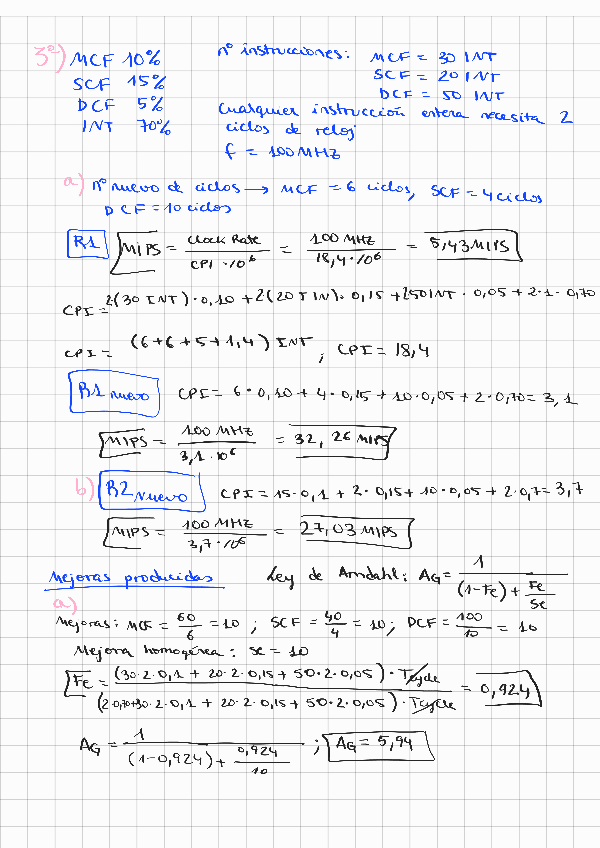 3º) MCF 10% nº instrucciones: MCF = 30 INT
SCF 15% SCF = 20 INT
DCF 5% DCF = 50 INT
INT 70% Cualquier instrucción entera necesita 2
ciclos de reloj
f = 100MHz
a) nº nuevo de ciclos → MCF = 6 ciclos, SCF = 4 ciclos
DCF = 10 ciclos
R1 MIPS = Clock Rate / CPI · 10⁶ = 100 MHz / 18,4 · 10⁶ = 5,43 MIPS
CPI = 2(30 INT) · 0,10 + 2(20 IIN) · 0,15 + 250INT · 0,05 + 2·1·0,70
CPI = (6+6+5+1,4) INT ; CPI = 18,4
R1 nuevo CPI = 6·0,10 + 4·0,15 + 10·0,05 + 2·0,70 = 3,1
MIPS = 100 MHz / 3,1 · 10⁶ = 32,26 MIPS
b) R2 nuevo CPI = 15·0,1 + 2·0,15 + 10·0,05 + 2·0,7 = 3,7
MIPS = 100 MHz / 3,7 · 10⁶ = 27,03 MIPS
Mejoras producidas Ley de Amdahl: AG = 1 / (1-Fe) + Fe/Se
a)
Mejoras: MCF = 60/6 = 10 ; SCF = 40/4 = 10; DCF = 100/10 = 10
Mejora homogénea: se = 10
Fe = (30·2·0,1 + 20·2·0,15 + 50·2·0,05) · Tcycle / (2·0,70+30·2·0,1 + 20·2·0,15 + 50·2·0,05) · Tcycle = 0,924
AG = 1 / (1-0,924) + 0,924/10 ; AG = 5,94